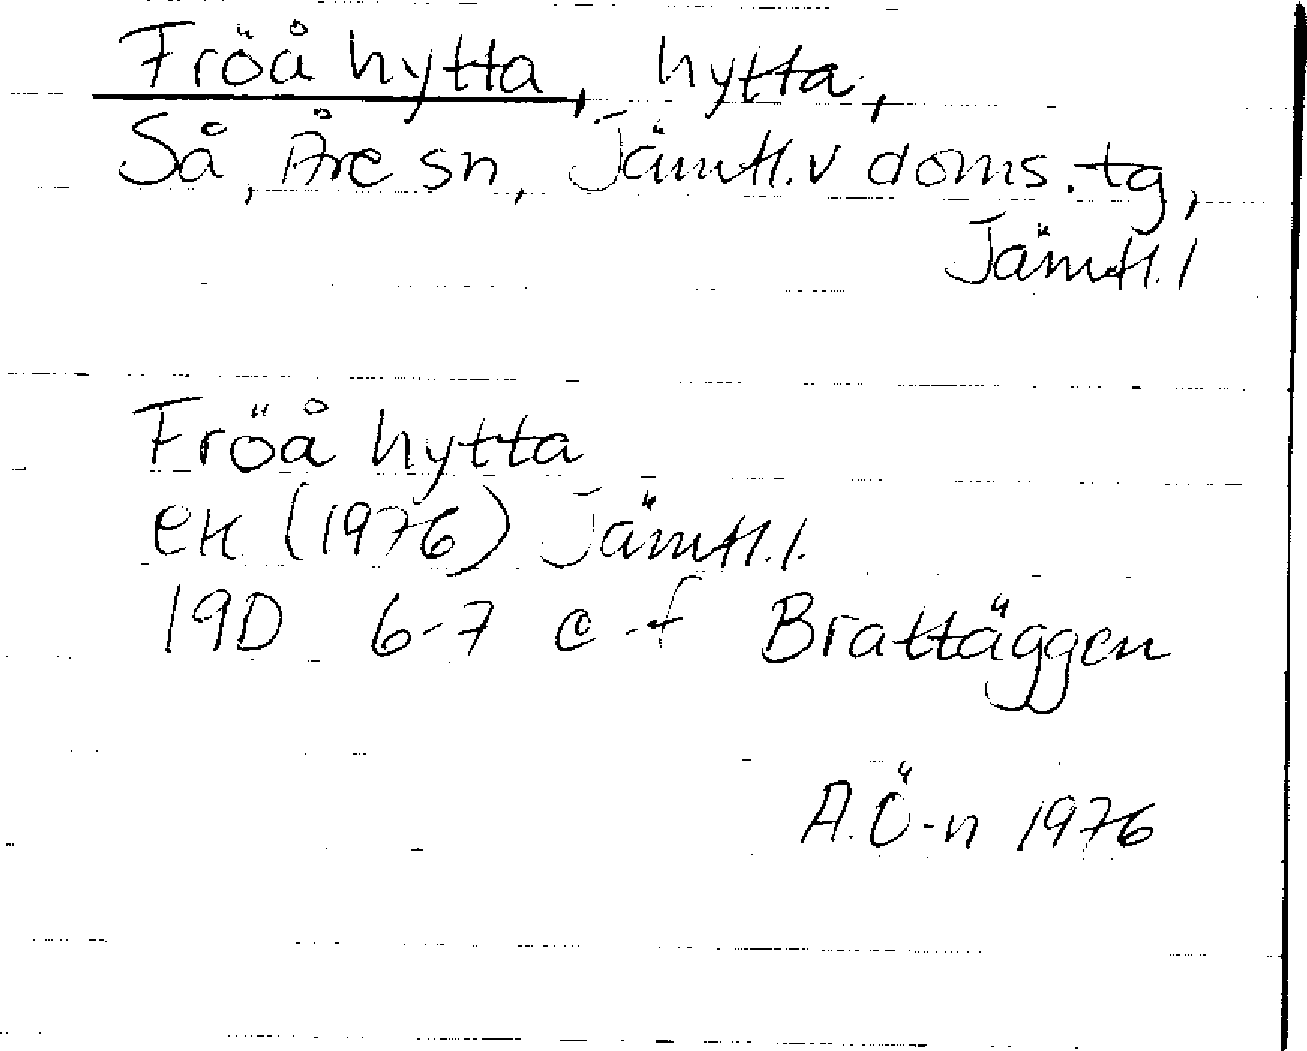 Fröå hytta, hytta,
Så, Åre sn, Jämtl.v doms.tg,
Jämtl.l
Fröå hytta
ek (1976) Jämtl.l.
19D 6-7 e-f Brattäggen
A.Ö-n 1976